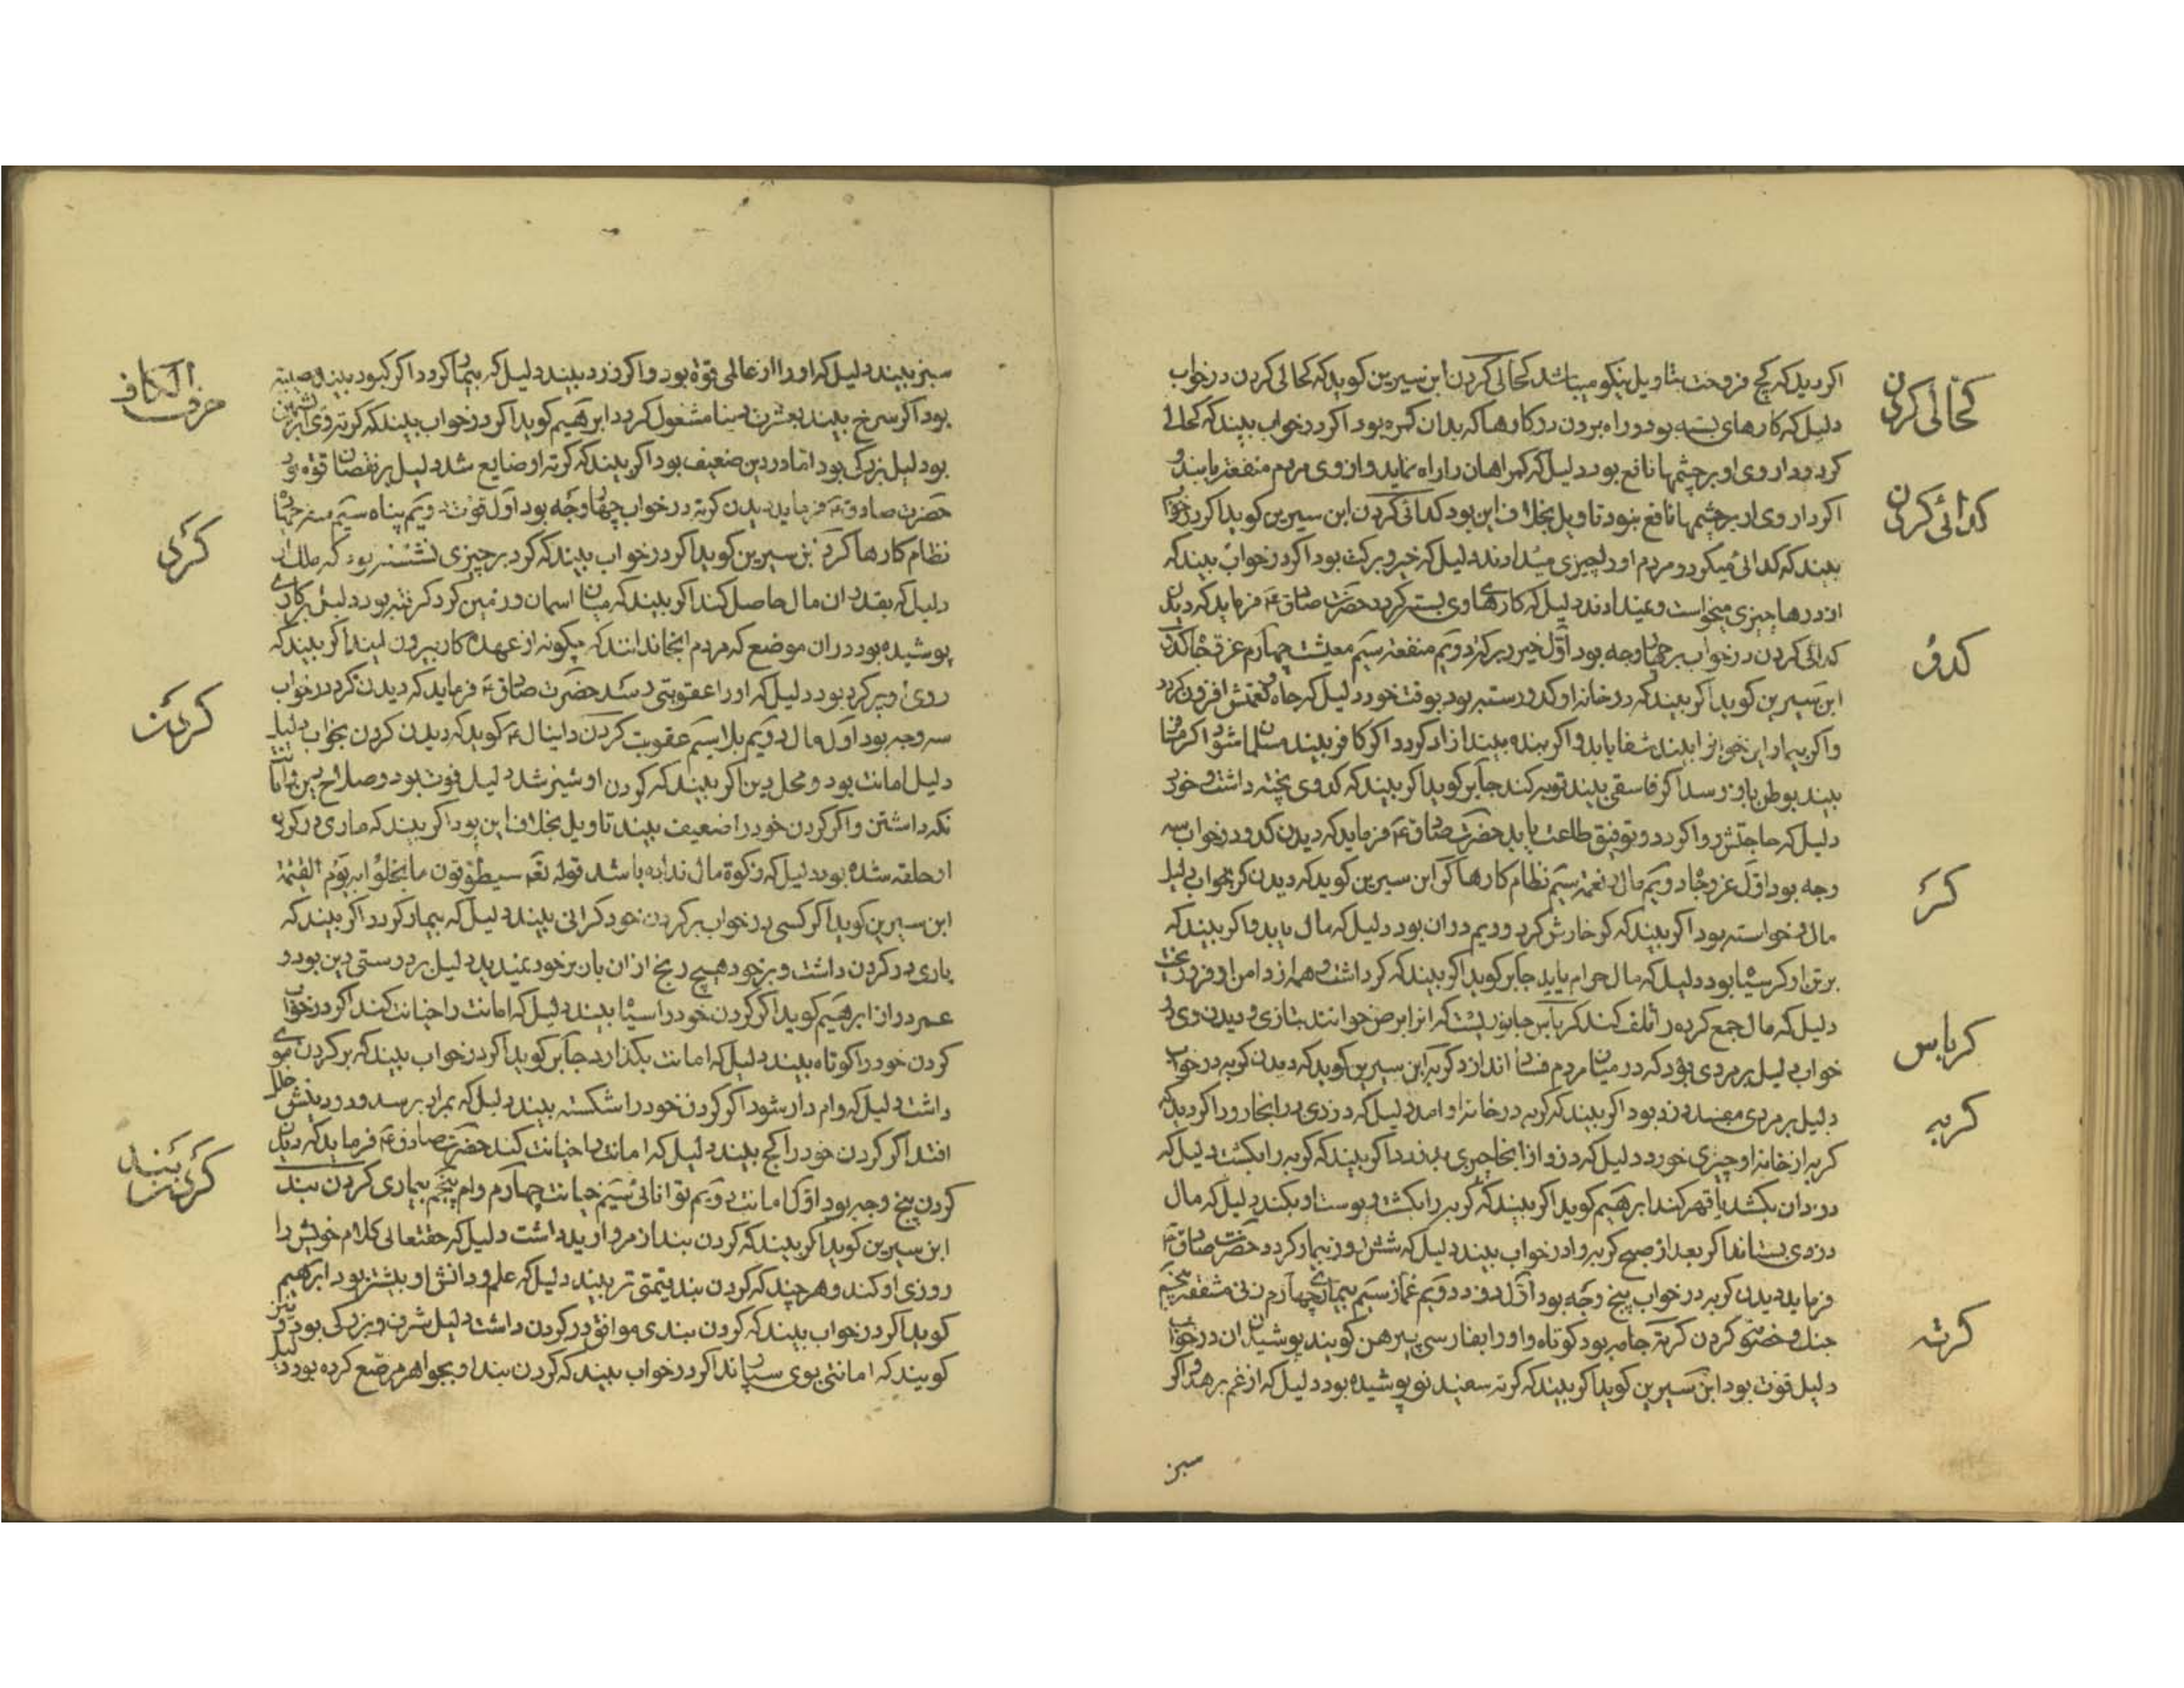 اکر دید که کچ فروخت بتاویل نیکو میباشد کحالی کردن ابن سیرین کوید که کحالی کردن در خواب
کحالی کردن
دلیل که کارهای بسته بود و راه بردن در کارها که بدان کمره بود اکر در خواب بیند که کحالی
کرد و داروی او بر چشمها نافع بود دلیل که کمراهان را راه نماید و از وی مردم منفعة یابند و
اکر داروی او بر چشمها نافع نبود تاویل بخلاف این بود کدائی کردن ابن سیرین کوید اکر در خواب
کدائی کردن
بیند که کدائی میکرد و مردم او را چیزی میدادند دلیل که خیر و برکت بود اکر در خواب بیند که
از درها چیزی میخواست و نمیدادند دلیل که کارهای وی بسته کردد حضرت صادق ع فرماید که دیدن
کدائی کردن در خواب بر چهار وجه بود اول خیر و برکة دویم منفعة سیم معیشت چهارم عز و جاه کدو
کدو
ابن سیرین کوید اکر بیند که در خانه او کدو رسته بود بوقت خود دلیل که جاه و نعمتش افزون کردد
و اکر بیمار این خواب را بیند شفا یابد و اکر بنده بیند ازاد کردد اکر کافر بیند مسلمان شود اکر مسافر
بیند بوطن باز رسد اکر فاسقی بیند توبه کند جابر کوید اکر بیند که کدوی پخته داشت و خورد
دلیل که حاجتش روا کردد و توفیق طاعت یابد حضرت صادق ع فرماید که دیدن کدو در خواب سه
وجه بود اول عز و جاه دویم مال و نعمة سیم نظام کارها کر ابن سیرین کوید که دیدن کر بخواب دلیل
کر
مال و خواسته بود اکر بیند که کر خارش کرد و ریم در ان بود دلیل که مال یابد و اکر بیند که
بر تن او کر سیاه بود دلیل که مال حرام یابد جابر کوید اکر بیند که کر داشت و همه از اندام او فرو ریخت
دلیل که مال جمع کرده را تلف کند کرباس جانوریست که انرا ابرص خوانند بتازی و دیدن وی در
کرباس
خواب دلیل بر مردی بود که در میان مردم فساد اندازد کربه ابن سیرین کوید که دیدن کربه در خواب
کربه
دلیل بر مردی مفسد و دزد بود اکر بیند که کربه در خانه او امد دلیل که دزدی در انجا رود اکر دید که
کربه از خانه او چیزی خورد دلیل که دزد از انجا چیزی بدزدد اکر بیند که کربه را بکشت دلیل که
دزدان بکشد یا قهر کند ابرهیم کوید اکر بیند که کربه را بکشت و پوست او بکند دلیل که مال
دزدی بستاند اکر بعد از صبح کربه را در خواب بیند دلیل که شش روز بیمار کردد حضرت صادق ع
فرماید دیدن کربه در خواب پنج وجه بود اول دزد دویم غماز سیم بیماری چهارم زن نی مشفقه پنجم
جنک و خصومة کردن کرته جامه بود کوتاه و او را بفارسی پیرهن کویند پوشیدن ان در خواب
کرته
دلیل قوت بود ابن سیرین کوید اکر بیند که کرته سفید نو پوشیده بود دلیل که از غم برهد و اکر
سبز
حرف الکاف
سبز بیند دلیل که او را از عالمی قوة بود و اکر زرد بیند دلیل که بیمار کردد اکر کبود بیند مصیبته
بود اکر سرخ بیند بعشرت دنیا مشغول کردد ابرهیم کوید اکر در خواب بیند که کرته وی ابریشمین
بود دلیل بزرکی بود اما در دین ضعیف بود اکر بیند که کرته او ضایع شد دلیل بر نقصان قوة بود
حضرت صادق ع فرماید دیدن کرته در خواب چهار وجه بود اول قوت دویم پناه سیم سفر چهارم
نظام کارها کرد ابن سیرین کوید اکر در خواب بیند که کرد بر چیزی نشسته بود که ملک او
کرد
دلیل که بقدر ان مال حاصل کند اکر بیند که میان اسمان و زمین کرد کرفته بود دلیل بر کاری
پوشیده بود در ان موضع که مردم انجا ندانند که چکونه از عهده کار بیرون ایند اکر بیند که
روی او پر کرد بود دلیل که او را عقوبتی رسد حضرت صادق ع فرماید که دیدن کرد در خواب
سه وجه بود اول مال دویم بلا سیم عقوبت کردن دانیال ع کوید که دیدن کردن بخواب دلیل
کردن
دلیل امانت بود و محل دین اکر بیند که کردن او شد دلیل قوت بود و صلاح دین و امانت
نکه داشتن و اکر کردن خود را ضعیف بیند تاویل بخلاف این بود اکر بیند که ماری در کردن
او حلقه شده بود دلیل که زکوة مال نداده باشد قوله تعم سیطوقون ما بخلوا به یوم القیمة
ابن سیرین کوید اکر کسی در خواب بر کردن خود کرانی بیند دلیل که بیمار کردد اکر بیند که
باری در کردن داشت و بر خود هیچ رنج از ان بار بر خود نمیدید دلیل بر درستی دین بود و
عمر دراز ابرهیم کوید اکر کردن خود را سیاه بیند دلیل که امانت را خیانت کند اکر در خواب
کردن خود را کوتاه بیند دلیل که امانت بکذارد جابر کوید اکر در خواب بیند که بر کردن موی
داشت دلیل که وام دار شود اکر کردن خود را شکسته بیند دلیل که بمراد برسد و در دینش خلل
افتد اکر کردن خود را کج بیند دلیل که امانت را خیانت کند حضرت صادق ع فرماید که دیدن
کردن پنج وجه بود اول امانت دویم توانائی سیم خیانت چهارم وام پنجم بیماری کردن بند
کردن بند
ابن سیرین کوید اکر بیند که کردن بند از مروارید داشت دلیل که حقتعالی کلام خویش را
روزی او کند و هر چند که کردن بند قیمتی تر بیند دلیل که علم و دانش او بیشتر بود ابرهیم
کوید اکر در خواب بیند که کردن بندی موافق در کردن داشت دلیل شرف و بزرکی بود و نیز
کویند که امانتی بوی سپارند اکر در خواب بیند که کردن بند او بجواهر مرصع کرده بود دلیل